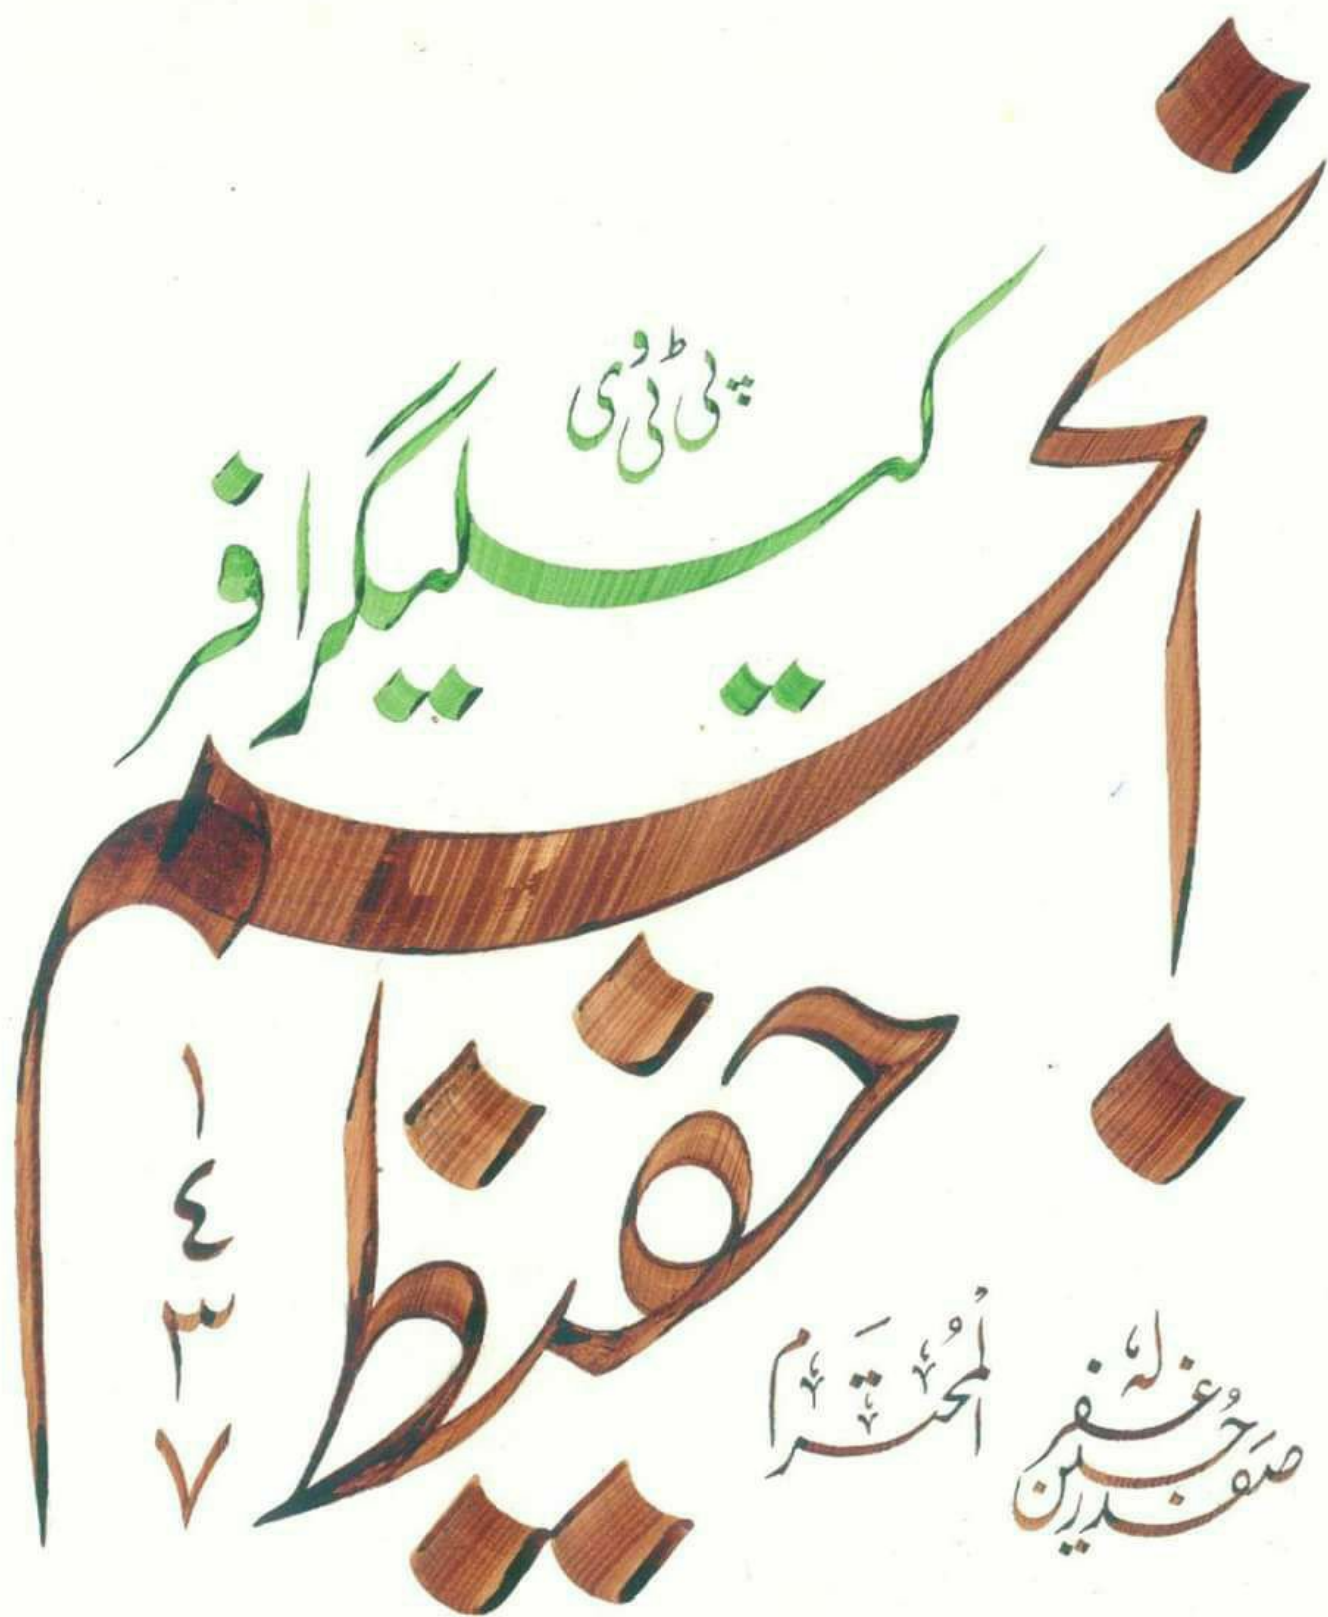 پی ٹی وی
کیلیگرافر
انجم
حفیظ
١٤٣٧
المُحترم
صفدر حُسین غفر لہ